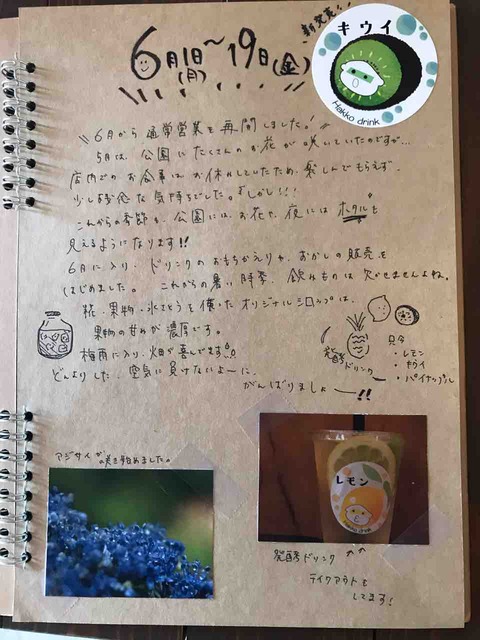 新発売!!
キウイ
Hakko drink
6月1日(月)〜19日(金)
6月から通常営業を再開しました!
5月は、公園にたくさんのお花が咲いていたのですが...
店内でのお食事はお休みしていたため、楽しんでもらえず、
少し残念な気持ちでした。しかし!!!
これからの季節も、公園にはお花や、夜には"ホタル"も
見えるようになります!!
6月に入り、ドリンクのおもちかえりや、おかしの販売も
はじめました。これからの暑い時季、飲みものは欠かせませんよね。
糀・果物・氷ざとうを使ったオリジナルシロップは、
果物の甘みが濃厚です。
梅雨に入り、畑が喜んでます
どんよりした、空気に負けないよーに、
がんばりましょー!!
発酵ドリンク
只今
・レモン
・キウイ
・パイナップル
アジサイが咲き始めました。
レモン
Hakko drink
発酵ドリンクの
テイクアウトも
してます!